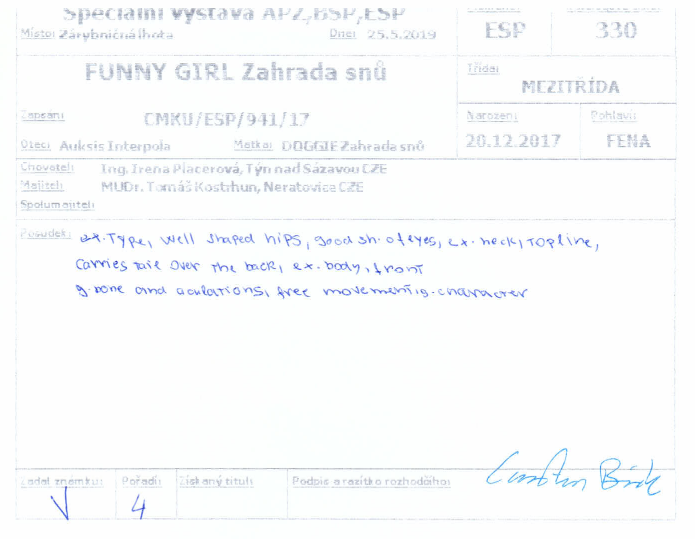 Speciální výstava APZ,BSP,ESP
Místo: Zárybničná lhota Dne: 25.5.2019
ESP
330
FUNNY GIRL Zahrada snů
Třída:
MEZITŘÍDA
Zapsání CMKU/ESP/941/17
Narozen: Pohlaví:
Otec: Auksis Interpola Matka: DOGGIE Zahrada snů
20.12.2017 FENA
Chovatel: Ing. Irena Placerová, Týn nad Sázavou CZE
Majitel: MUDr. Tomáš Kostrhun, Neratovice CZE
Spolumajitel:
Posudek: ex. Type, well shaped hips, good sh. of eyes, ex. neck, topline,
carries tail over the back, ex. body, front
g. bone and aculations, free movement, g. character
Zadal známku: Pořadí: Získaný titul: Podpis a razítko rozhodčího:
V 4